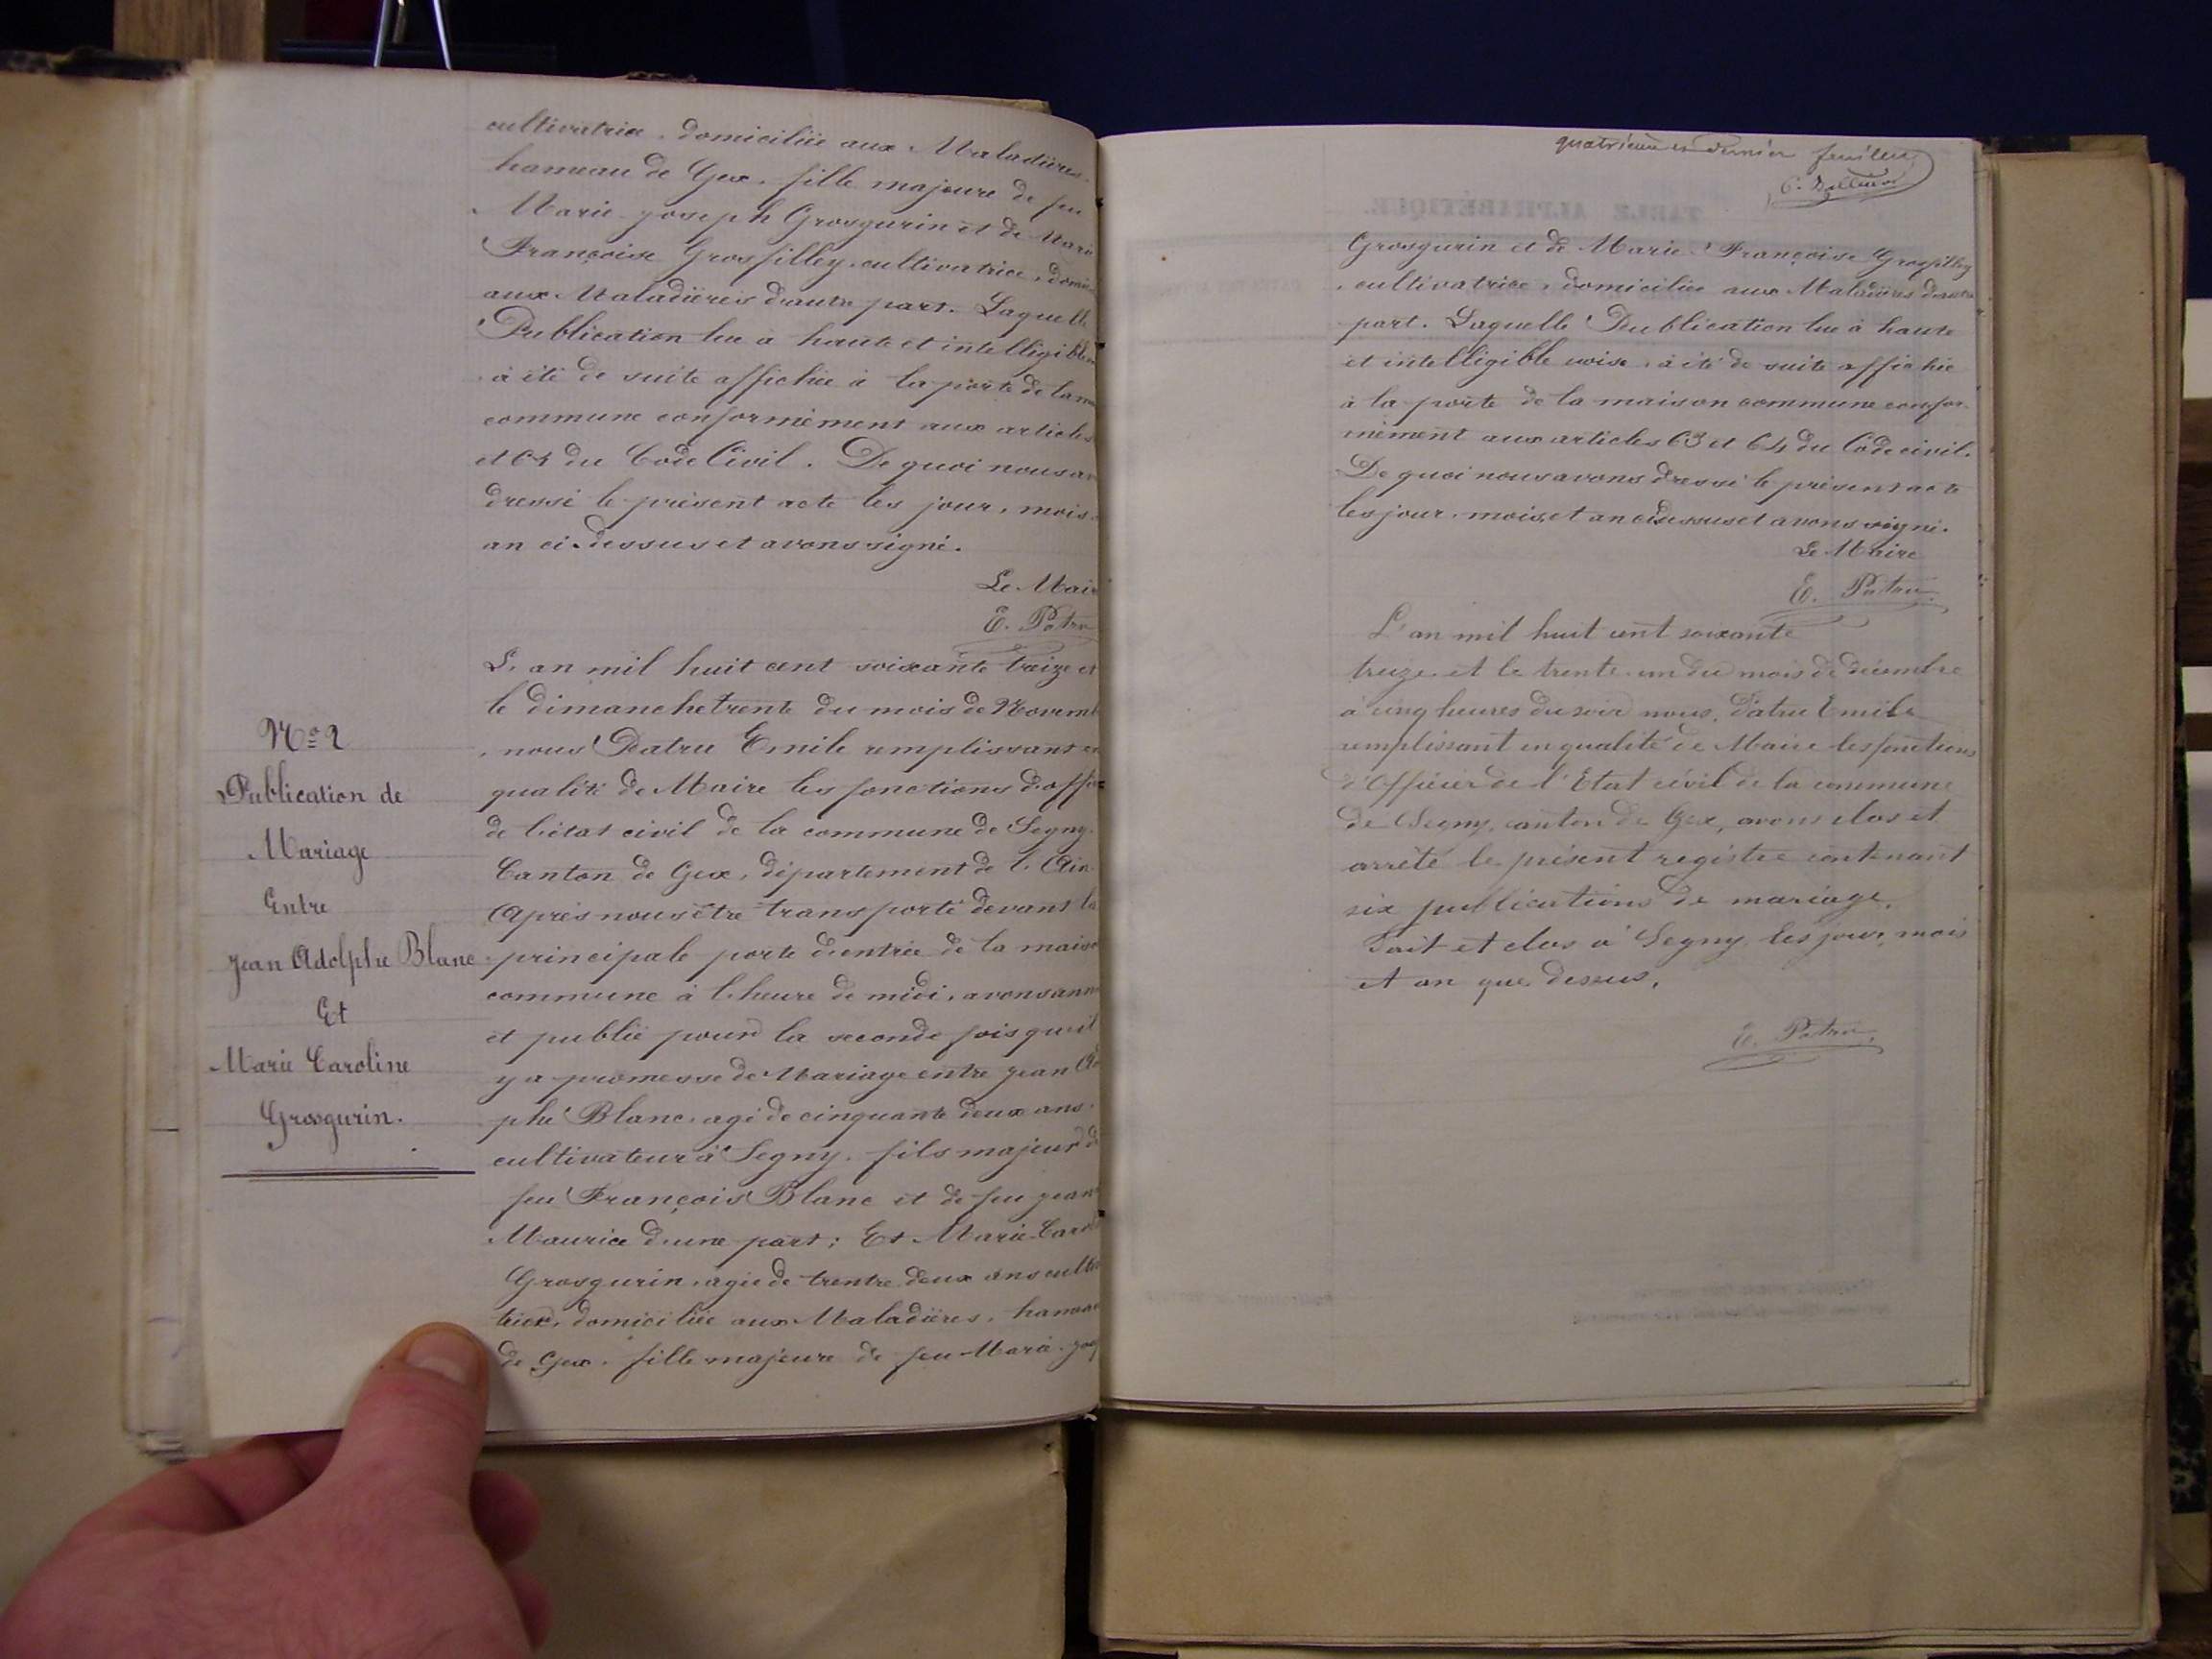 cultivatrice, domiciliée aux Maladières,
hameau de Gex, fille majeure de feu
Marie-joseph Grosgurin et de Marie
Françoise Grosfilley, cultivatrice, domi
aux Maladières d'autre part. Laquelle
Publication lue à haute et intelligible
à été de suite affichée à la porte de la m
commune conformément aux articles
et 64 du Code Civil. De quoi nous av
dressé le présent acte les jour, mois
an ci-dessus et avons signé.
Le Mair
E. Patru
N° 2
Publication de
Mariage
Entre
Jean Adolphe Blanc
Et
Marie Caroline
Grosgurin.
L'an mil huit cent soixante treize et
le dimanche trente du mois de Novemb
nous Patru Emile remplissant en
qualité de Maire les fonctions d'offic
de l'état civil de la commune de Segny,
Canton de Gex, département de l'Ain
Après nous être transporté devant la
principale porte d'entrée de la maiso
commune à l'heure de midi, avons ann
et publié pour la seconde fois qu'il
y a promesse de Mariage entre jean Ad
phe Blanc, agé de cinquante deux ans,
cultivateur à Segny, fils majeur de
feu François Blanc et de feu jean
Maurice d'une part; Et Marie-Caro
Grosgurin, agée de trentre deux ans culti
trice, domiciliée aux Maladières, hamea
de Gex, fille majeure de feu Marie-jos
quatrième et dernier feuillet
Grosgurin et de Marie-Françoise Grosfilley
cultivatrice, domiciliée aux Maladières d'autre
part. Laquelle Publication lue à haute
et intelligible voix, à été de suite affichée
à la porte de la maison commune confor-
mément aux articles 63 et 64 du Code civil.
De quoi nous avons dressé le présent acte
les jour, mois, et an ci dessus et avons signé.
Le Maire
E. Patru
L'an mil huit cent soixante
treize et le trente-un du mois de décembre
à cinq heures du soir nous, Patru Emile
remplissant en qualité de Maire les fonctions
d'Officier de l'Etat civil de la commune
de Segny, canton de Gex, avons clos et
arrêté le présent registre contenant
six publications de mariage.
Fait et clos à Segny les jour, mois
et an que dessus.
E. Patru